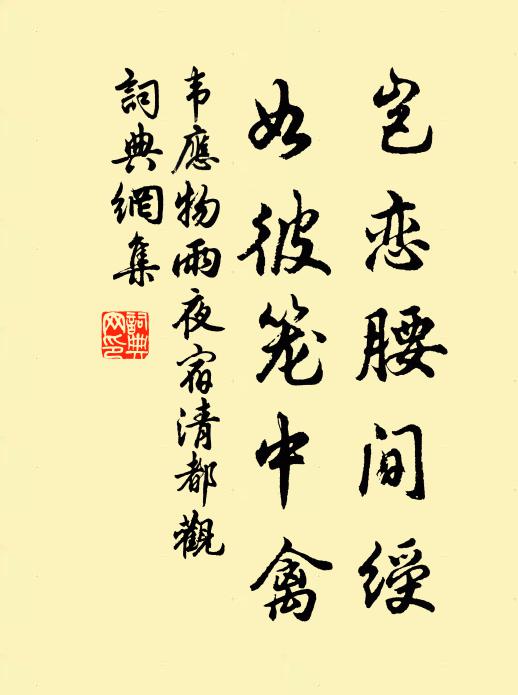 岂恋腰间绶
如彼笼中禽
韦應物雨夜宿清都觀
詞典網集
詞典网印